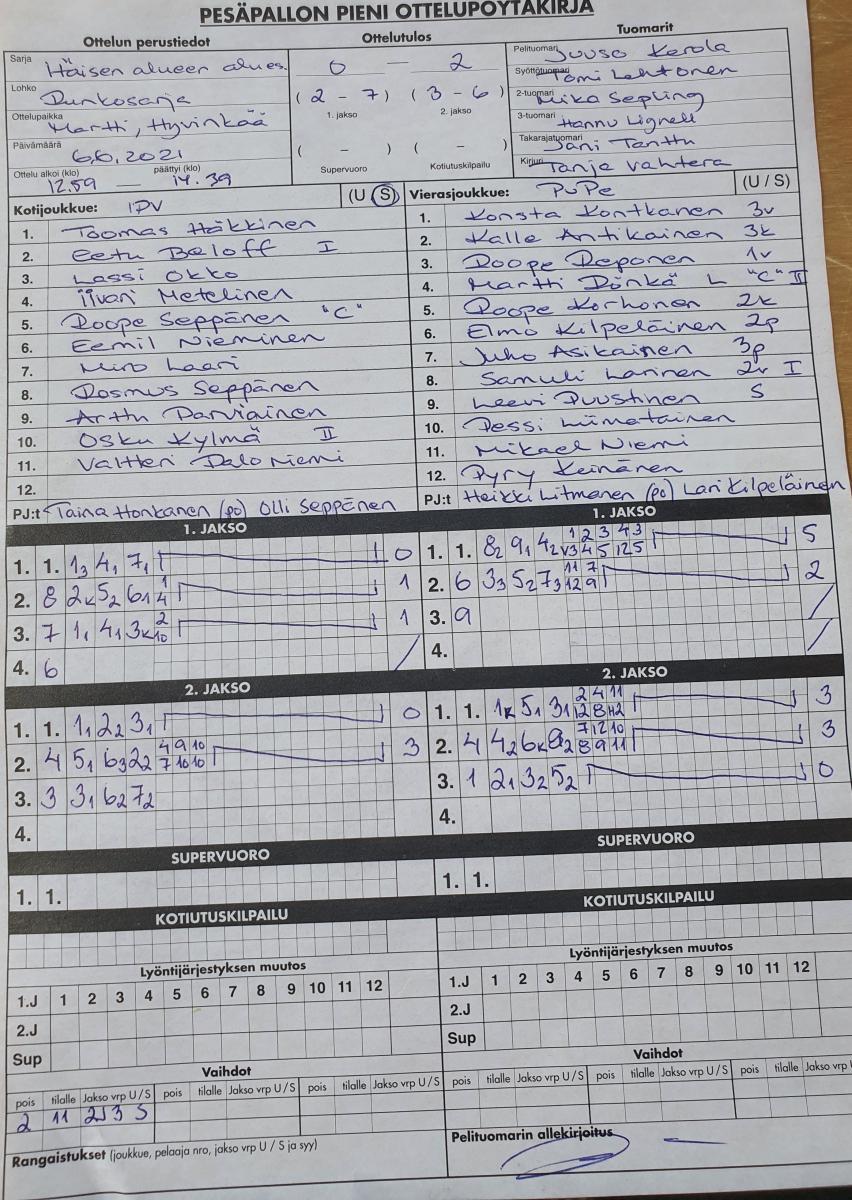 PESÄPALLON PIENI OTTELUPÖYTÄKIRJA
Ottelun perustiedot
Ottelutulos
Tuomarit
Sarja Häisen alueer alues.
Lohko Runkosarja
Ottelupaikka Martti, Hyvinkää
Päivämäärä 6.6.2021
Ottelu alkoi (klo) 12.59 — päättyi (klo) 14.39
0 — 2
( 2 - 7 ) ( 3 - 6 )
1. jakso 2. jakso
( - ) ( - )
Supervuoro Kotiutuskilpailu
Pelituomari Juuso Kerola
Syöttötuomari Tomi Lehtonen
2-tuomari Mika Sepling
3-tuomari Hannu Lignell
Takarajatuomari Jani Tanttu
Kirjuri Tanja Vahtera
Kotijoukkue: IPV (U S)
1. Toomas Häkkinen
2. Eetu Beloff I
3. Lassi Okko
4. Iivari Metelinen
5. Roope Seppänen "C"
6. Eemil Nieminen
7. Miro Laari
8. Rasmus Seppänen
9. Arttu Parviainen
10. Osku Kylmä II
11. Valtteri Paloniemi
12.
PJ:t Taina Honkanen (po) Olli Seppänen
Vierasjoukkue: PuPe (U / S)
1. Konsta Kontkanen 3v
2. Kalle Antikainen 3k
3. Roope Reponen 1v
4. Martti Pönkä L "C" II
5. Roope Korhonen 2k
6. Elmo Kilpeläinen 2p
7. Juho Asikainen 3p
8. Samuli Larinen 2v I
9. Leevi Puustinen S
10. Pessi Liimatainen
11. Mikael Niemi
12. Pyry Keinänen
PJ:t Heikki Litmanen (po) Lari Kilpeläinen
1. JAKSO
1. 1. 13 41 71 0
2. 8 2k 52 61 1 4 1
3. 7 11 41 3k 2 10 1
4. 6 /
1. JAKSO
1. 1. 82 91 42 5
2. 6 33 52 73 11 7 12 9 2
3. 9 /
4. /
2. JAKSO
1. 1. 11 22 31 0
2. 4 51 63 22 4 9 10 7 10 10 3
3. 3 31 62 72
4.
2. JAKSO
1. 1. 1k 51 31 2 4 11 3
2. 4 42 6k 82 7 12 10 8 9 11 3
3. 1 21 32 52 0
4.
SUPERVUORO
1. 1.
SUPERVUORO
1. 1.
KOTIUTUSKILPAILU
KOTIUTUSKILPAILU
Lyöntijärjestyksen muutos
1.J 1 2 3 4 5 6 7 8 9 10 11 12
2.J
Sup
Lyöntijärjestyksen muutos
1.J 1 2 3 4 5 6 7 8 9 10 11 12
2.J
Sup
Vaihdot
pois tilalle Jakso vrp U / S pois tilalle Jakso vrp U / S pois tilalle Jakso vrp U / S
2 11 2J3 S
Vaihdot
pois tilalle Jakso vrp U / S pois tilalle Jakso vrp U / S pois tilalle Jakso vrp
Rangaistukset (joukkue, pelaaja nro, jakso vrp U / S ja syy)
Pelituomarin allekirjoitus